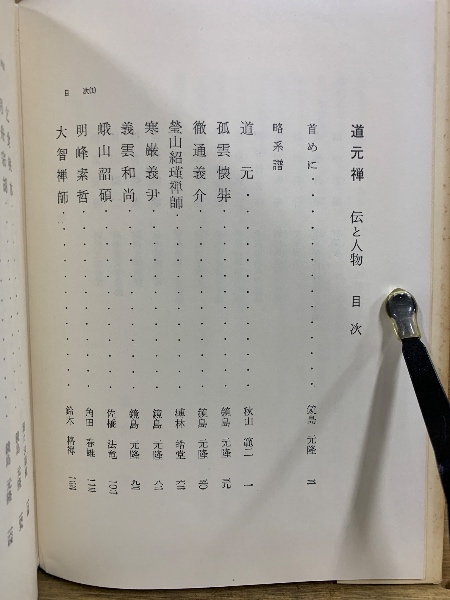 道元禅 伝と人物 目次
首めに 鏡島 元隆
略系譜
道元 秋山 範二 一
孤雲懐弉 鏡島 元隆
徹通義介 鏡島 元隆
瑩山紹瑾禅師
寒巌義尹 鏡島 元隆
義雲和尚 鏡島 元隆
峨山韶碩 佐橋 法竜
明峰素哲
大智禅師 鈴木 格禅
目 次(1)